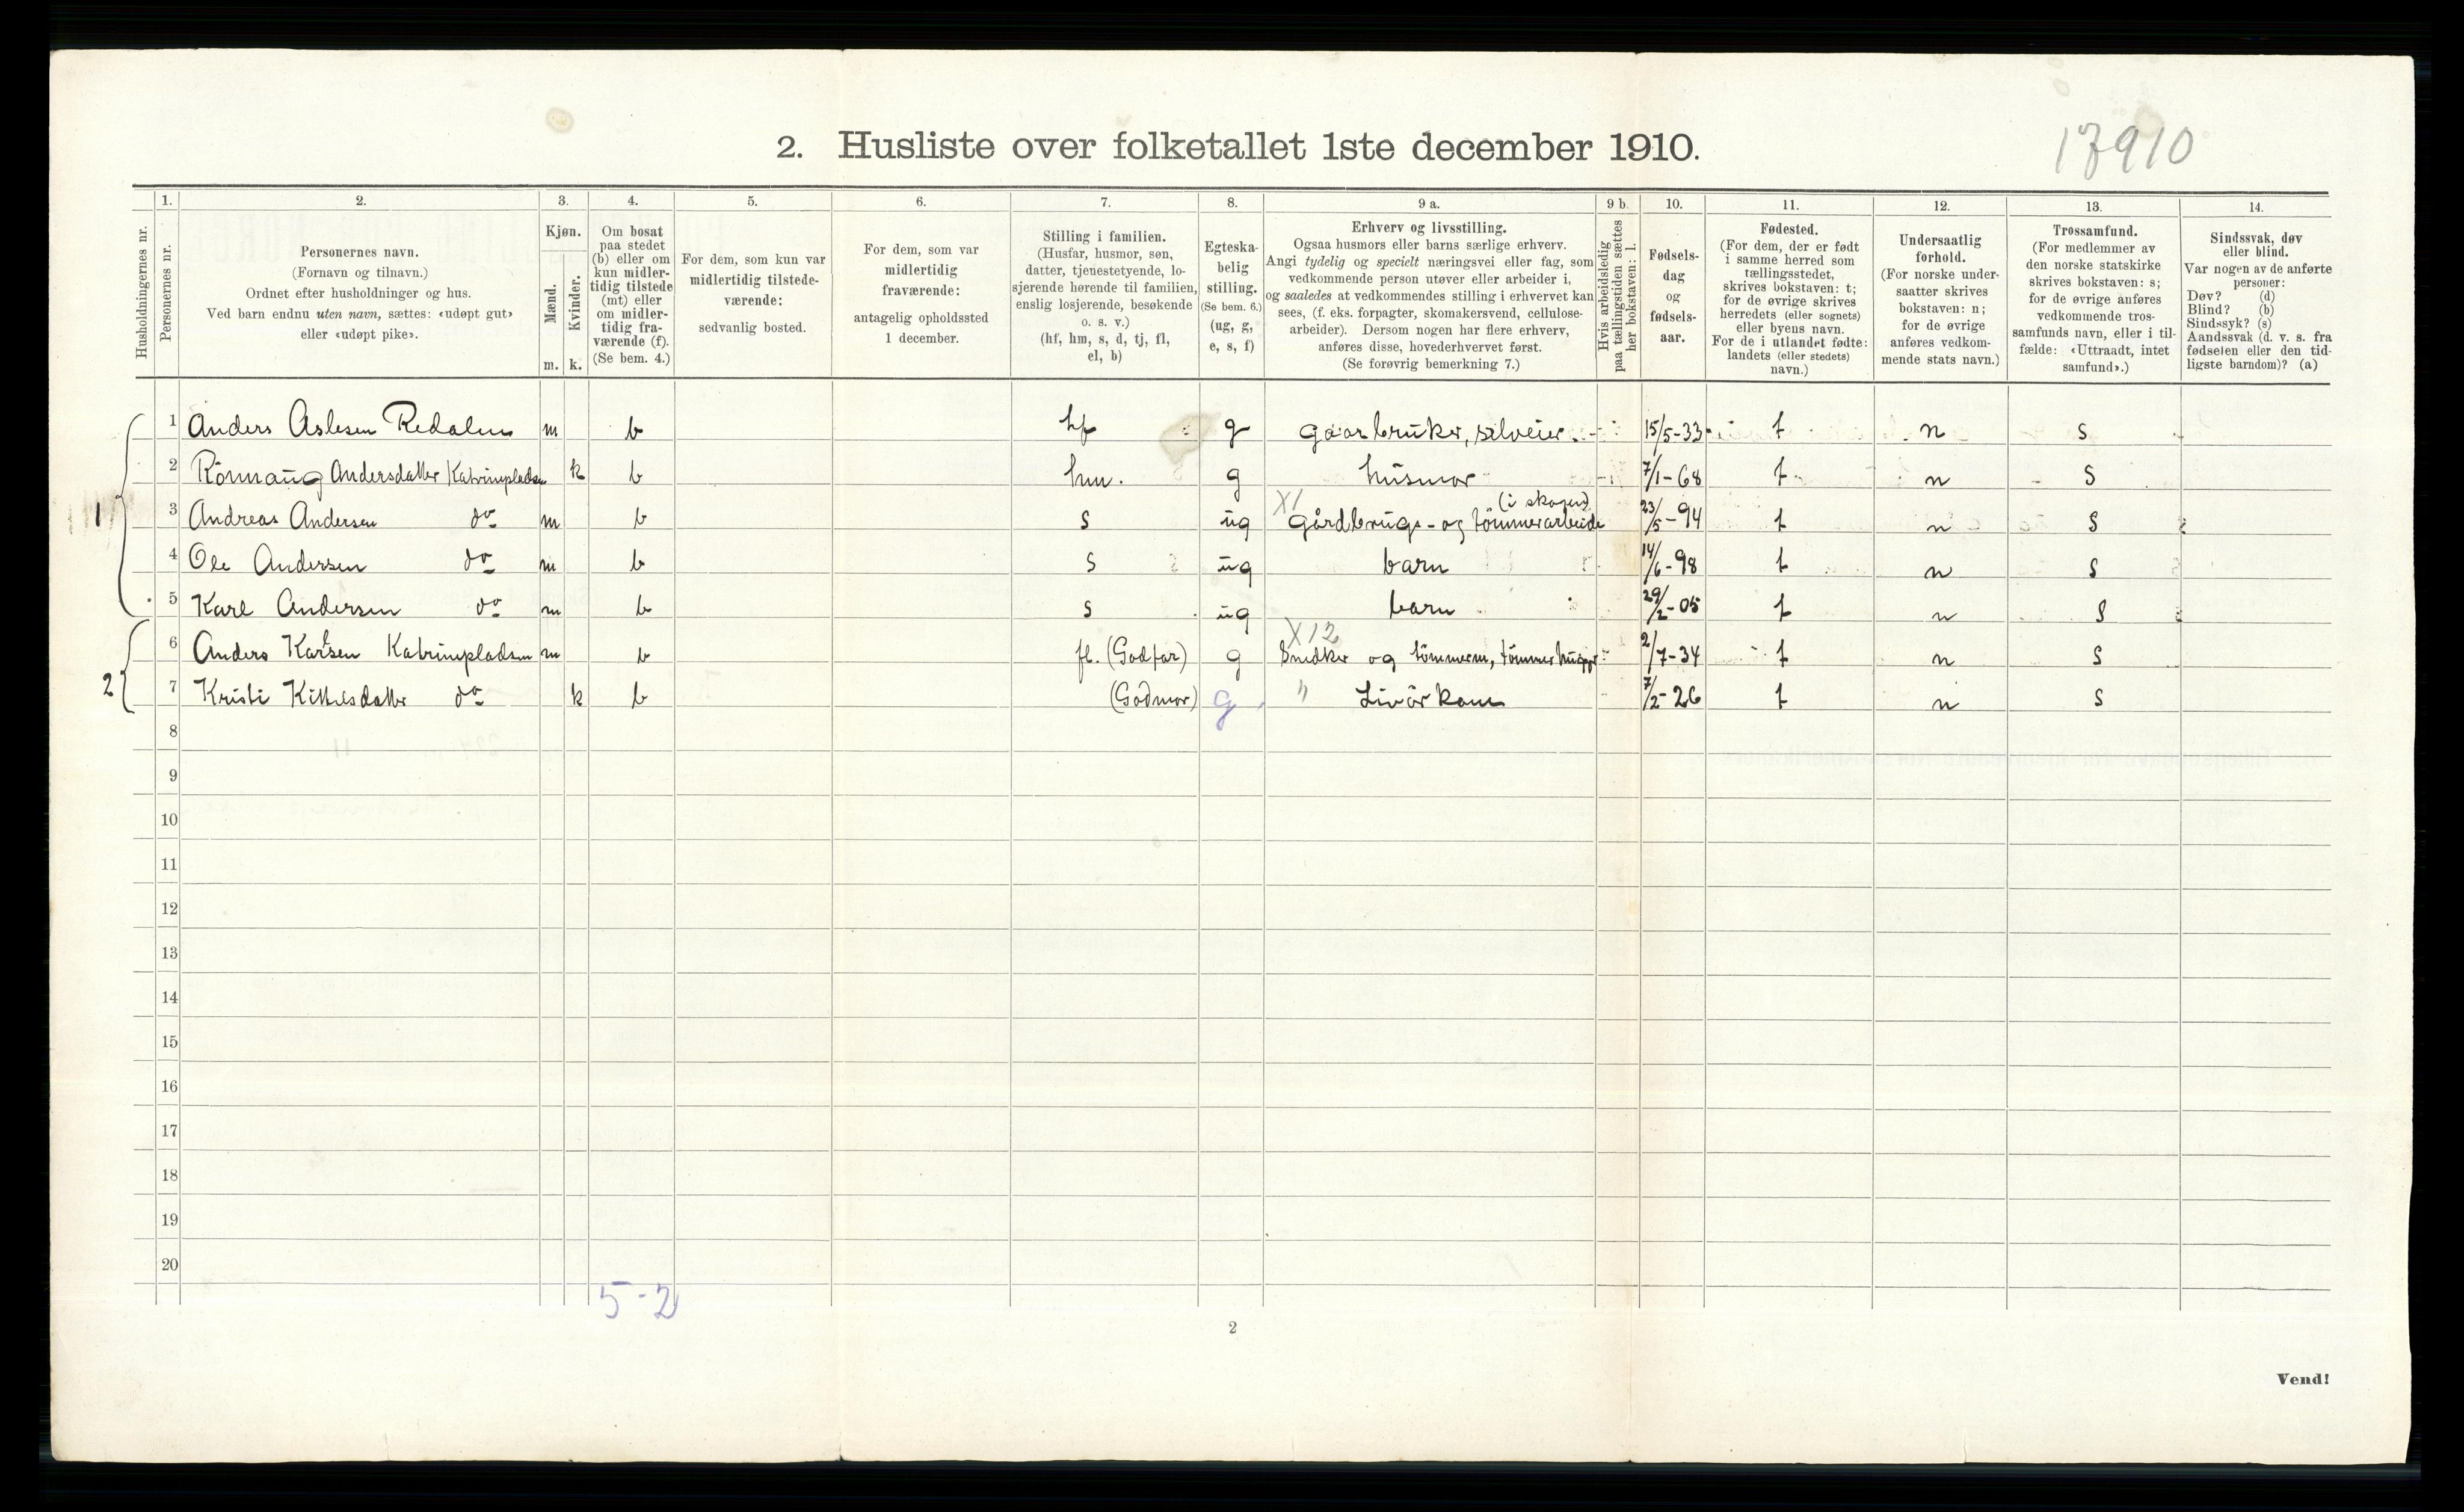 2. Husliste over folketallet 1ste december 1910.
17910
Husholdningernes nr.
1. Personernes nr.
2. Personernes navn.
(Fornavn og tilnavn.)
Ordnet efter husholdninger og hus.
Ved barn endnu uten navn, sættes: «udøpt gut»
eller «udøpt pike».
3. Kjøn.
Mænd. m.
Kvinder. k.
4. Om bosat
paa stedet
(b) eller om
kun midler-
tidig tilstede
(mt) eller
om midler-
tidig fra-
værende (f).
(Se bem. 4.)
5. For dem, som kun var
midlertidig tilstede-
værende:
sedvanlig bosted.
6. For dem, som var
midlertidig
fraværende:
antagelig opholdssted
1 december.
7. Stilling i familien.
(Husfar, husmor, søn,
datter, tjenestetyende, lo-
sjerende hørende til familien,
enslig losjerende, besøkende
o. s. v.)
(hf, hm, s, d, tj, fl,
el, b)
8. Egteska-
belig
stilling.
(Se bem. 6.)
(ug, g,
e, s, f)
9 a. Erhverv og livsstilling.
Ogsaa husmors eller barns særlige erhverv.
Angi tydelig og specielt næringsvei eller fag, som
vedkommende person utøver eller arbeider i,
og saaledes at vedkommendes stilling i erhvervet kan
sees, (f. eks. forpagter, skomakersvend, cellulose-
arbeider). Dersom nogen har flere erhverv,
anføres disse, hovederhvervet først.
(Se forøvrig bemerkning 7.)
9 b. Hvis arbeidsledig
paa tællingstiden sættes
her bokstaven: l.
10. Fødsels-
dag
og
fødsels-
aar.
11. Fødested.
(For dem, der er født
i samme herred som
tællingsstedet,
skrives bokstaven: t;
for de øvrige skrives
herredets (eller sognets)
eller byens navn.
For de i utlandet fødte:
landets (eller stedets)
navn.)
12. Undersaatlig
forhold.
(For norske under-
saatter skrives
bokstaven: n;
for de øvrige
anføres vedkom-
mende stats navn.)
13. Trossamfund.
(For medlemmer av
den norske statskirke
skrives bokstaven: s;
for de øvrige anføres
vedkommende tros-
samfunds navn, eller i til-
fælde: «Uttraadt, intet
samfund».)
14. Sindssvak, døv
eller blind.
Var nogen av de anførte
personer:
Døv? (d)
Blind? (b)
Sindssyk? (s)
Aandssvak (d. v. s. fra
fødselen eller den tid-
ligste barndom)? (a)
1 Anders Aslesen Redalen m b hf g gaarbruker, selveier. 15/5-33 t n s
2 Rönnaug Andersdatter Katrinpladsen k b hm. g husmor 7/1-68 t n s
X1 (i skogen)
1 3 Andreas Andersen do m b s ug gårdbrugs- og tömmerarbeide 23/5-94 t n s
4 Ole Andersen do m b s ug barn 14/6-98 t n s
5 Karl Andersen do m b s ug barn 29/2-05 t n s
X12
6 Anders Karlsen Katrinpladsen m b fl. (Godfar) g Snedker og tömmerm, tömmerhugger 2/7-34 t n s
2 7 Kristi Kittelsdatter do k b (Godmor) g " Livörkone 7/2-26 t n s
8
9
10
11
12
13
14
15
16
17
18
19
20
5-2
2
Vend!